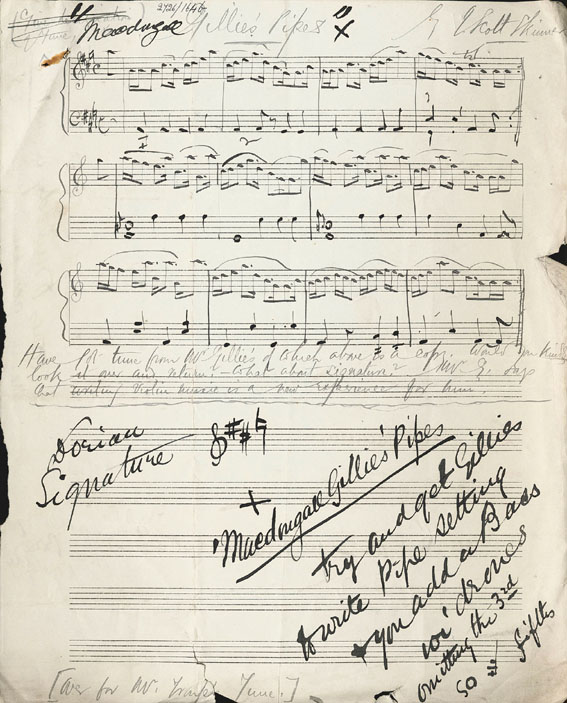 3726/1646
"Macdougall Gillie's Pipes" X
By J. Scott Skinner
Have got tune from Mr Gillies of which above is a copy. Would you kindly
look it over and return. What about signature? Mr G. says
that writing violin music is a new experience for him.
Dorian
Signature
+
'Macdougall Gillies' Pipes
Try and get Gillies
to write Pipe setting
& you add a Bass
wi' drones
omitting the 3rd
so fifths
[Over for Mr. Tune.]